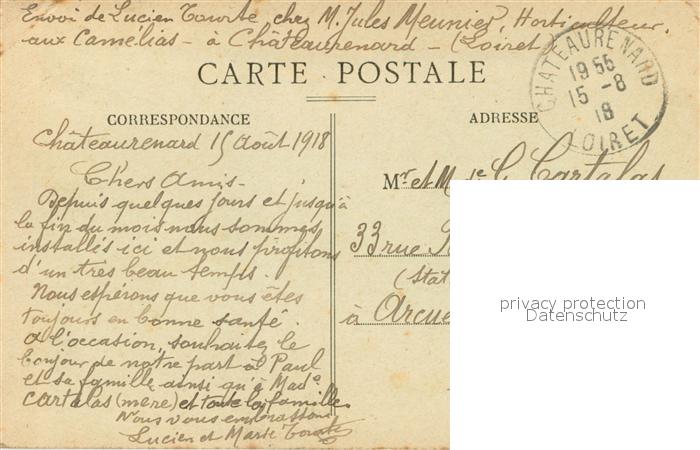 Envoi de Lucien Tourte, chez M. Jules Meunier, Horticulteur.
aux Camélias - à Châteaurenard - (Loiret)
CARTE POSTALE
CHATEAURENARD
19 55
15 - 8
18
LOIRET
CORRESPONDANCE
ADRESSE
Châteaurenard 15 août 1918
Chers Amis -
Depuis quelques jours et jusqu'à
la fin du mois nous sommes
installés ici et nous profitons
d'un très beau temps.
Nous espérons que vous êtes
toujours en bonne santé.
A l'occasion, souhaitez le
bonjour de notre part à Paul
et sa famille ainsi qu'à Made
Cartalas (mère) et toute la famille
Nous vous embrassons
Lucien et Marie Tourte
Mr et M de C. Cartalas
33 rue
(Stat
à Arcue
privacy protection
Datenschutz